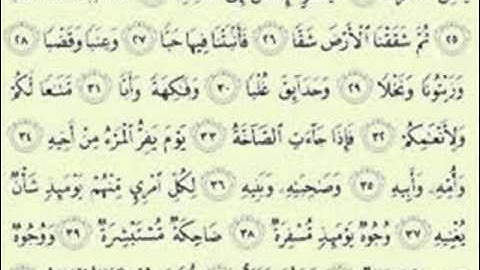 ٢٥ ثُمَّ شَقَقْنَا ٱلْأَرْضَ شَقًّا ٢٦ فَأَنۢبَتْنَا فِيهَا حَبًّا ٢٧ وَعِنَبًا وَقَضْبًا ٢٨
وَزَيْتُونًا وَنَخْلًا ٢٩ وَحَدَآئِقَ غُلْبًا ٣٠ وَفَٰكِهَةً وَأَبًّا ٣١ مَّتَٰعًا لَّكُمْ
وَلِأَنْعَٰمِكُمْ ٣٢ فَإِذَا جَآءَتِ ٱلصَّآخَّةُ ٣٣ يَوْمَ يَفِرُّ ٱلْمَرْءُ مِنْ أَخِيهِ ٣٤
وَأُمِّهِۦ وَأَبِيهِ ٣٥ وَصَٰحِبَتِهِۦ وَبَنِيهِ ٣٦ لِكُلِّ ٱمْرِئٍ مِّنْهُمْ يَوْمَئِذٍ شَأْنٌ
يُغْنِيهِ ٣٧ وُجُوهٌ يَوْمَئِذٍ مُّسْفِرَةٌ ٣٨ ضَاحِكَةٌ مُّسْتَبْشِرَةٌ ٣٩ وَوُجُوهٌ